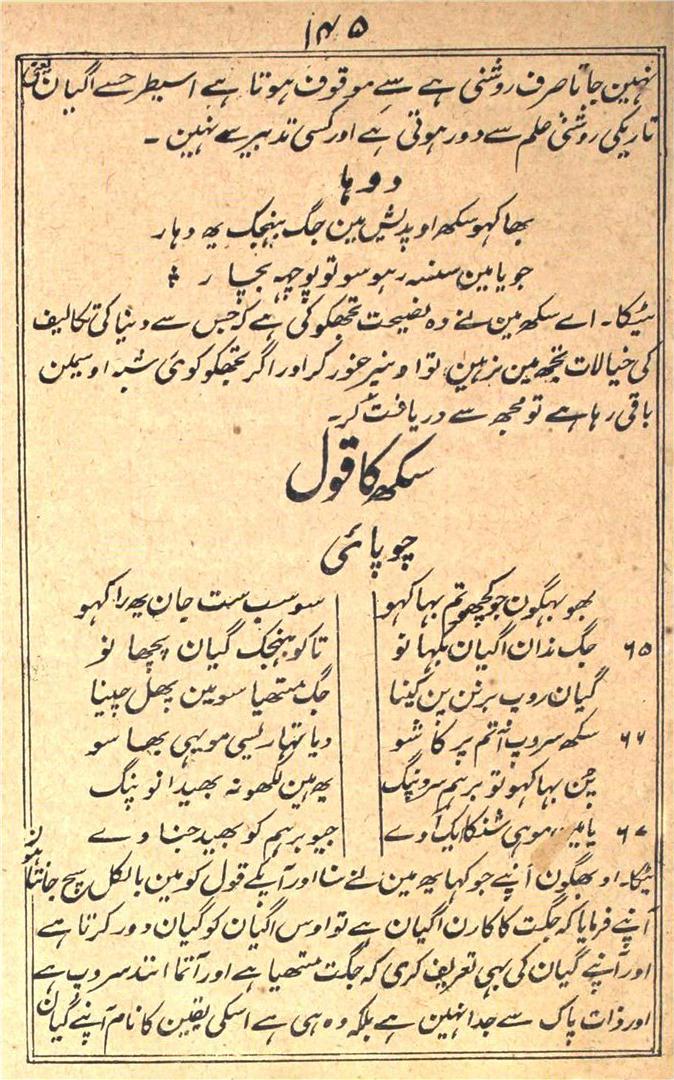 ۱۴۵
نہین جاتا صرف روشنی ہے سے موقوف ہوتا ہے اسیطرحسے اگیان یعنی
تاریکی روشنی علم سے دور ہوتی ہے اور کسی تدبیر سے نہین ۔
دوہا
بھاکہو سکھ اوپدیش مین جگ بہنجک یہ دہار
جو یامین سنسہ رہو سو تو پوچہہ بچار
ٹیکا ۔ اے سکھ مین نے وہ نصیحت تجھکو کی ہے کہ جس سے دنیا کی تکالیف
کی خیالات تجھ مین نرہین تو اوسپر غور کر اور اگر تجھکو کوئی شبہ اوسمین
باقی رہا ہے تو مجھ سے دریافت کر ۔
سکھ کا قول
چوپائی
بھو بہگون جو کچھو تم بہاکہو سو سب ست جان یہ راکہو
۶۵ جگ ندان اگیان بکہانو تاکو بہنجک گیان پچھانو
گیان روپ برنن پن کینا جگ متھیا سو مین پھل چینا
۶۶ سکھ سروپ آتم پرکاشو دیا تہاریسی موہی بھاسو
پن بہاکہو تو برہم سروپنگ یہ مین لکھو نہ بھید انوپنگ
۶۷ یامین موہی شنکا ایک آوے جیو برہم کو بھید جناوے
ٹیکا ۔ او بھگون آپنے جو کہا یہ مین نے سنا اور آپکے قول کو مین بالکل سچ جانتا ہون
آپنے فرمایا کہ جگت کا کارن اگیان ہے تو اوس اگیان کو گیان دور کرتا ہے
اور آپنے گیان کی یہی تعریف کری کہ جگت متھیا ہے اور آتما انند سروپ ہے
اور ذات پاک سے جدا نہین ہے بلکہ وہ ہی ہے اسکی یقین کا نام آپنے گیان